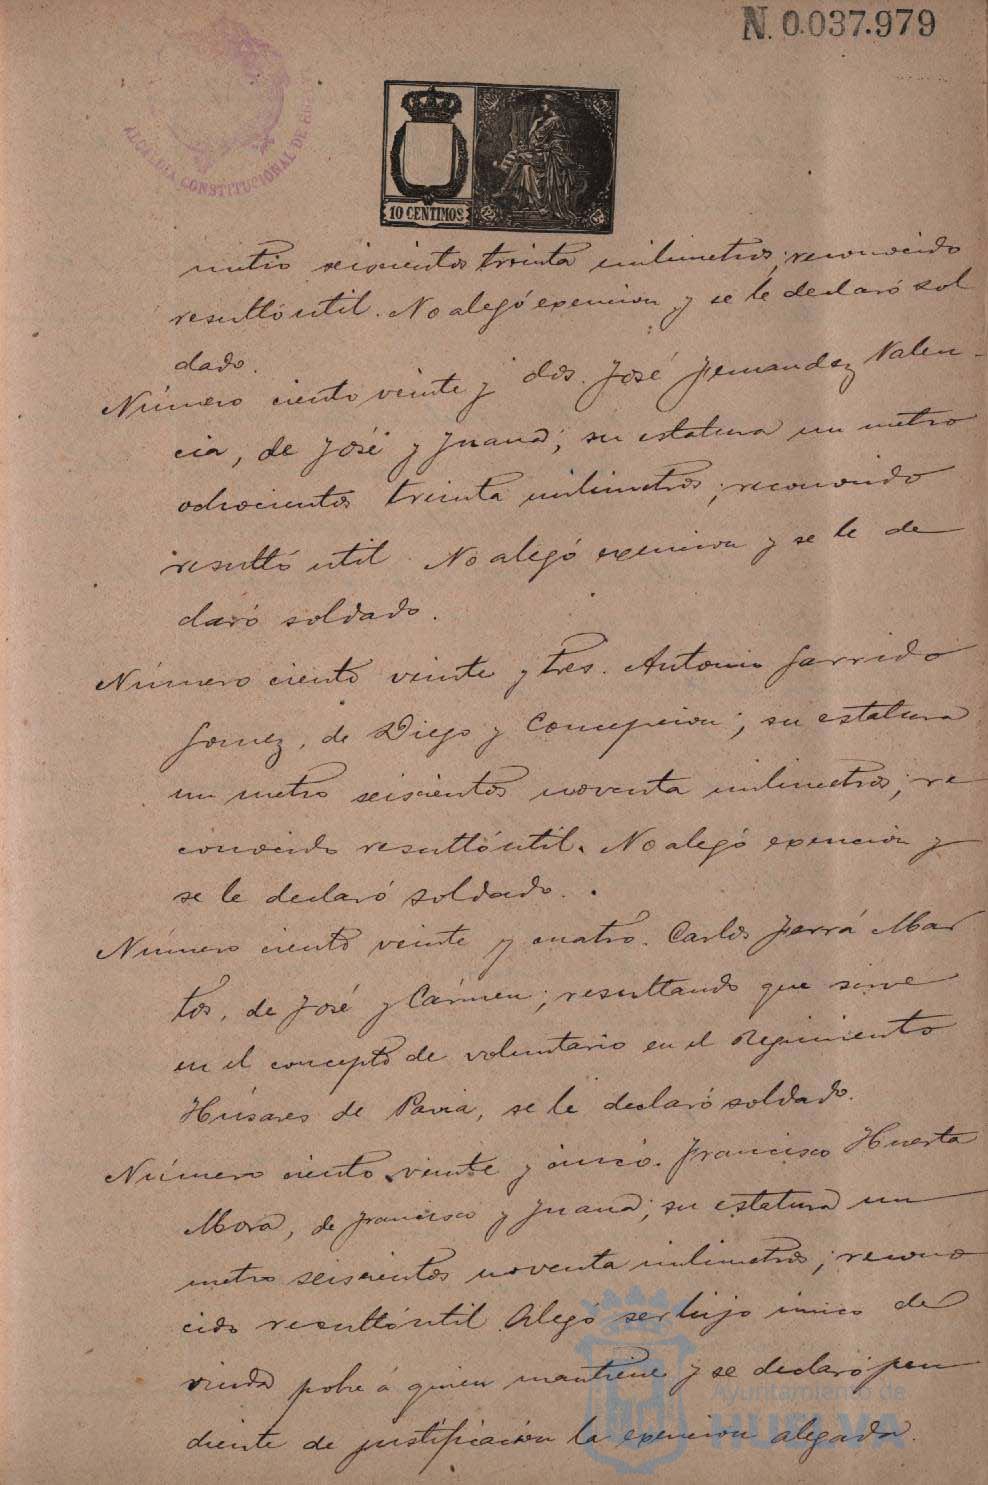 N. 0.037.979
ALCALDIA CONSTITUCIONAL DE
10 CENTIMOS
metro seiscientos treinta milimetros; reconocido
resultó útil. No alegó exencion y se le declaró sol
dado.
Número ciento veinte y dos. José Fernandez Valen-
cia, de José y Juana; su estatura un metro
ochocientos treinta milimetros; reconocido
resultó util. No alegó exencion y se le de
claró soldado.
Número ciento veinte y tres. Antonio Garrido
Gomez, de Diego y Concepcion; su estatura
un metro seiscientos noventa milimetros; re
conocido resultó útil. No alegó exencion y
se le declaró soldado.
Número ciento veinte y cuatro. Carlos Ferrá Mar
tos, de José y Cármen; resultando que sirve
en el concepto de voluntario en el Regimiento
Húsares de Pavia, se le declaró soldado.
Número ciento veinte y cinco. Francisco Huerta
Mora, de Francisco y Juana; su estatura un
metro seiscientos noventa milimetros; recono
cido resultó útil. Alegó ser hijo único de
viuda pobre á quien mantiene y se declaró pen
diente de justificacion la exencion alegada.
Ayuntamiento de
HUELVA